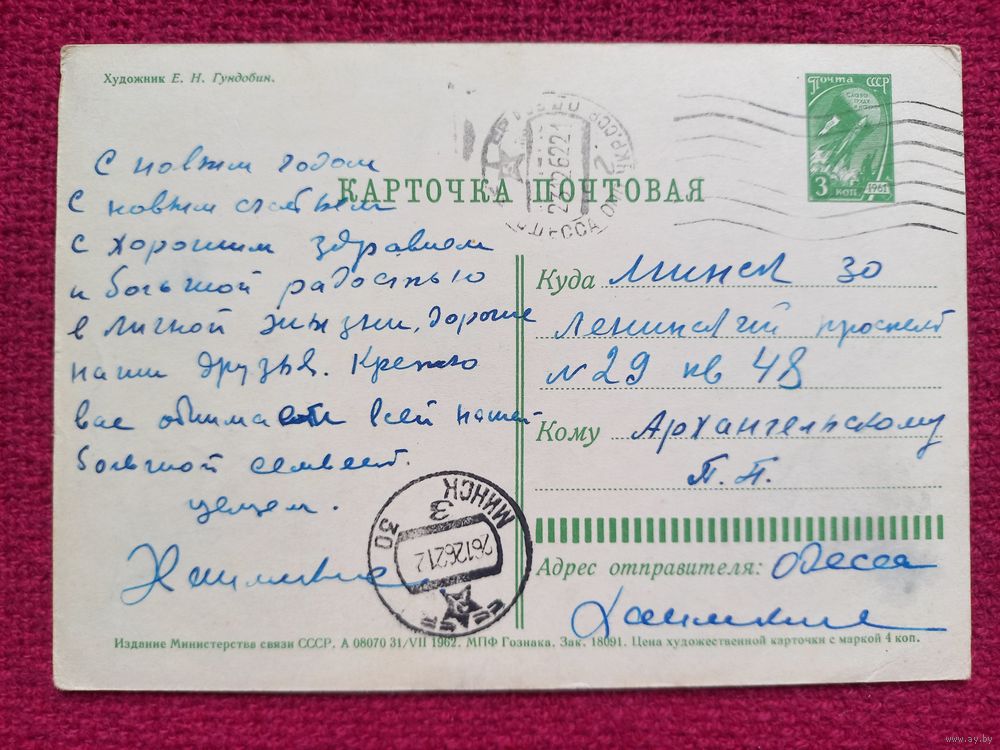 Художник Е. Н. Гундобин.
Почта СССР
3 коп 1961
КАРТОЧКА ПОЧТОВАЯ
С новым годом
С новым счастьем
с хорошим здравием
и большой радостью
в личной жизни, дорогие
наши друзья. Крепко
вас обнимаем всей нашей
большой семьей.
целуем.
Куда Минск 30
Ленинский проспект
№ 29 кв 48
Кому Архангельскому
П. П.
МИНСК
3
30
Адрес отправителя: Одесса
Издание Министерства связи СССР. А 08070 31/VII 1962. МПФ Гознака. Зак. 18091. Цена художественной карточки с маркой 4 коп.
www.ay.by